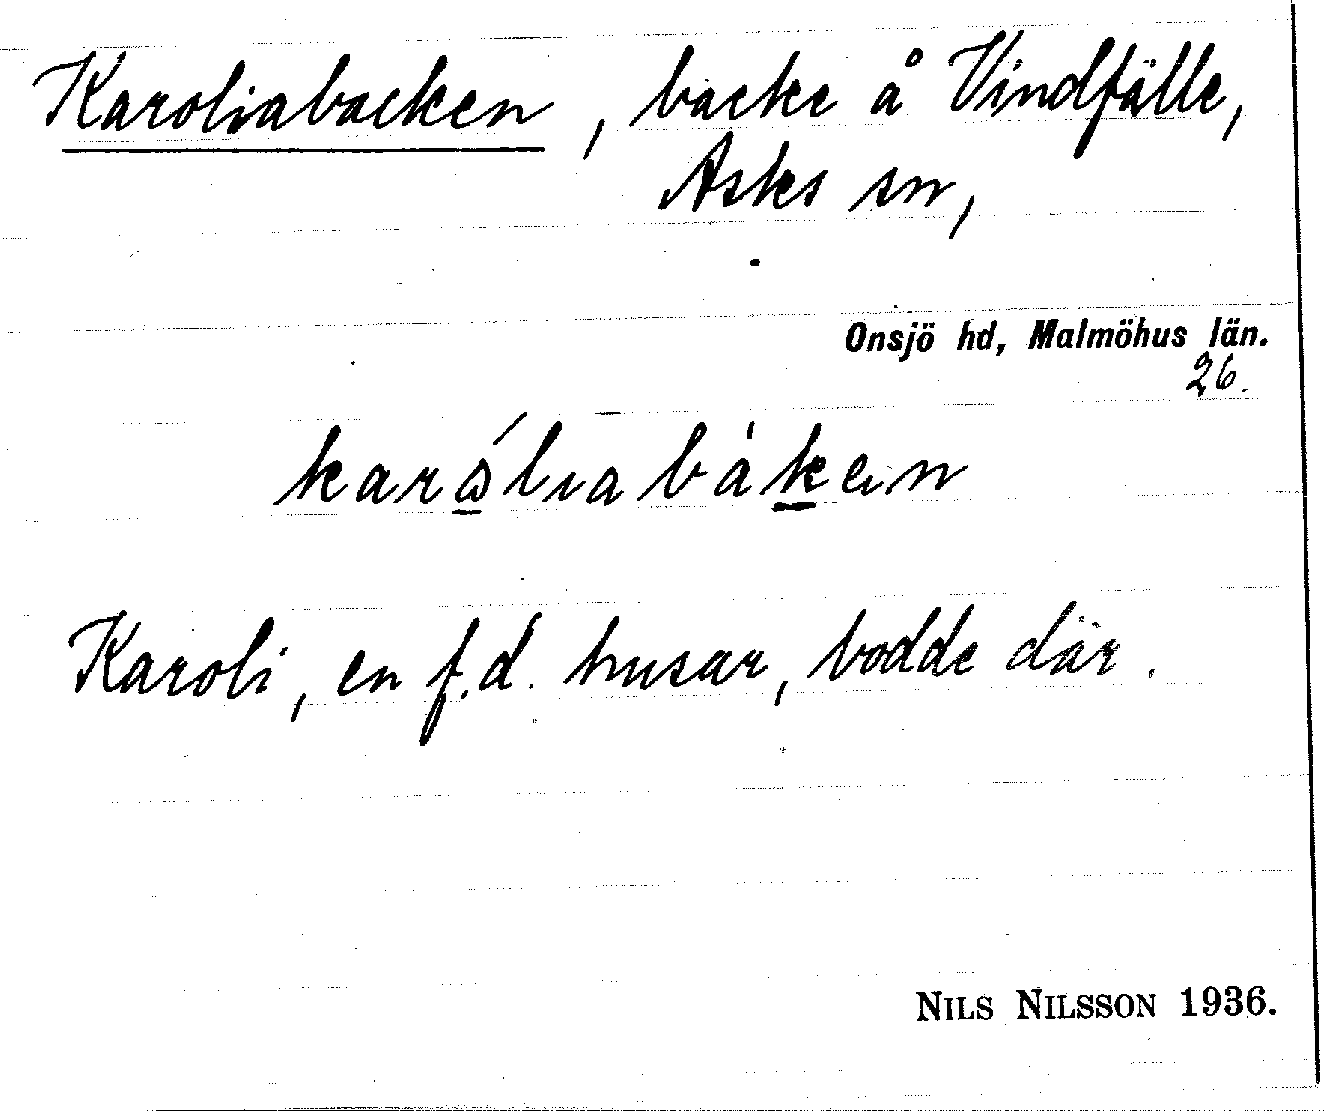 Karoliabacken, backe å Vindfälle,
Asks sn,
Onsjö hd, Malmöhus län.
26.
karóliabàken
Karoli, en f.d. husar, bodde där.
NILS NILSSON 1936.